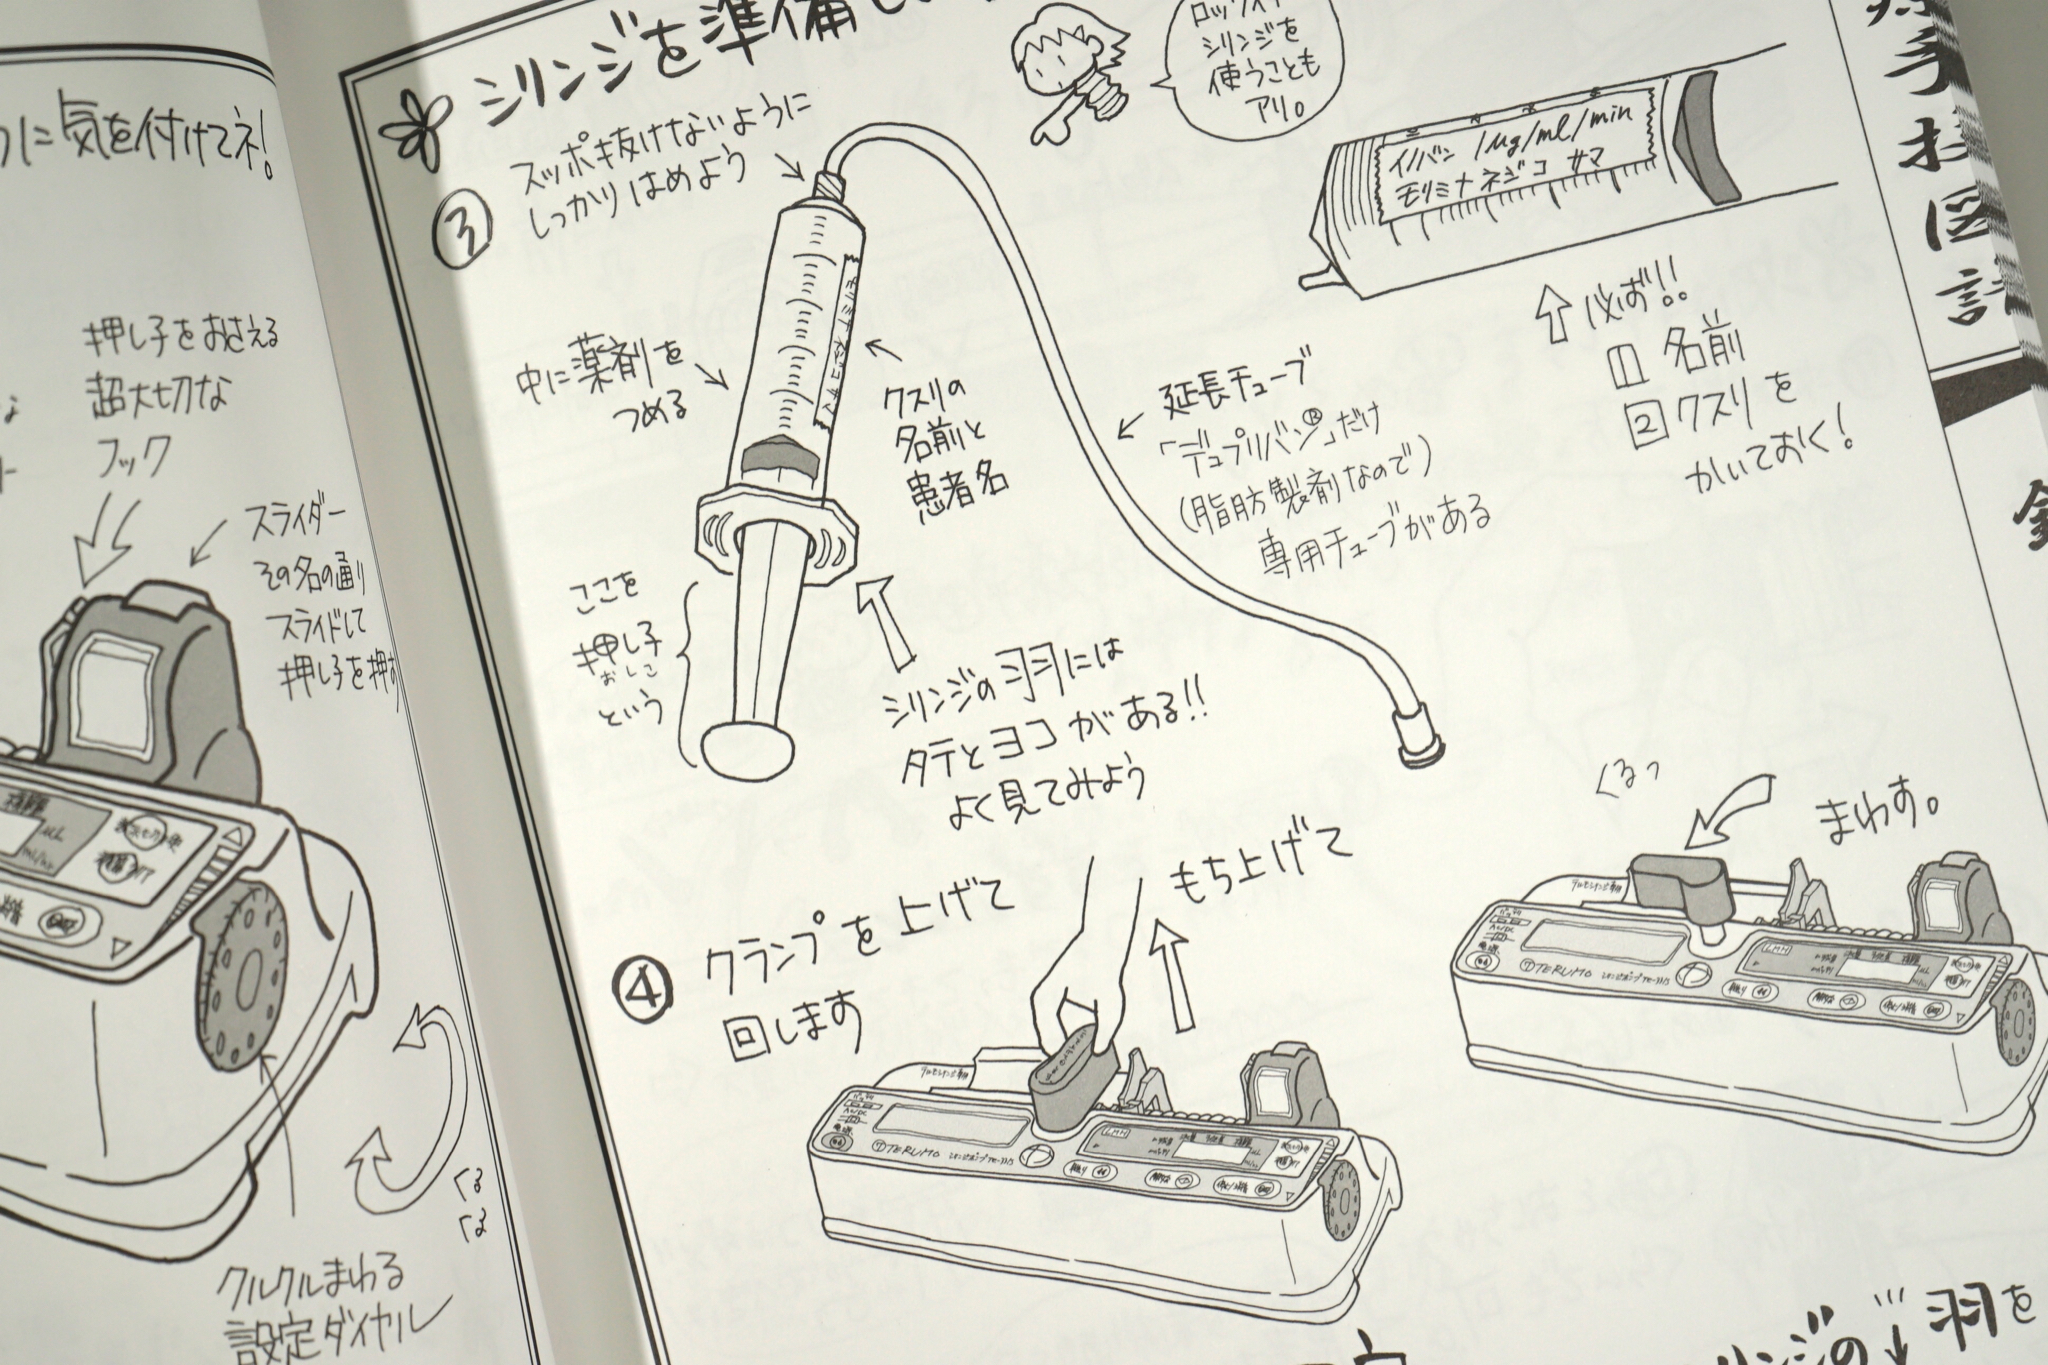 うに気を付けてネ!
押し子をおさえる
超大切な
フック
スライダー
その名の通り
スライドして
押し子を押す
くる
くる
クルクルまわる
設定ダイヤル
シリンジを準備し
③
スッポ抜けないように
しっかりはめよう
シリンジを
使うことも
アリ。
イノバン 1μg/ml/min
モリミナ ネジコ サマ
必ず!!
1 名前
2 クスリを
かいておく!
中に薬剤を
つめる
モリミナ ネジコ サマ
クスリの
名前と
患者名
延長チューブ
「デュプリバン®」だけ
(脂肪製剤なので)
専用チューブがある
ここを
押し子
おしこ
という
シリンジの羽には
タテとヨコがある!!
よく見てみよう
④ クランプを上げて
回します
もち上げて
TERUMO
くるっ
まわす。
TERUMO
シリンジの
羽を
手技図